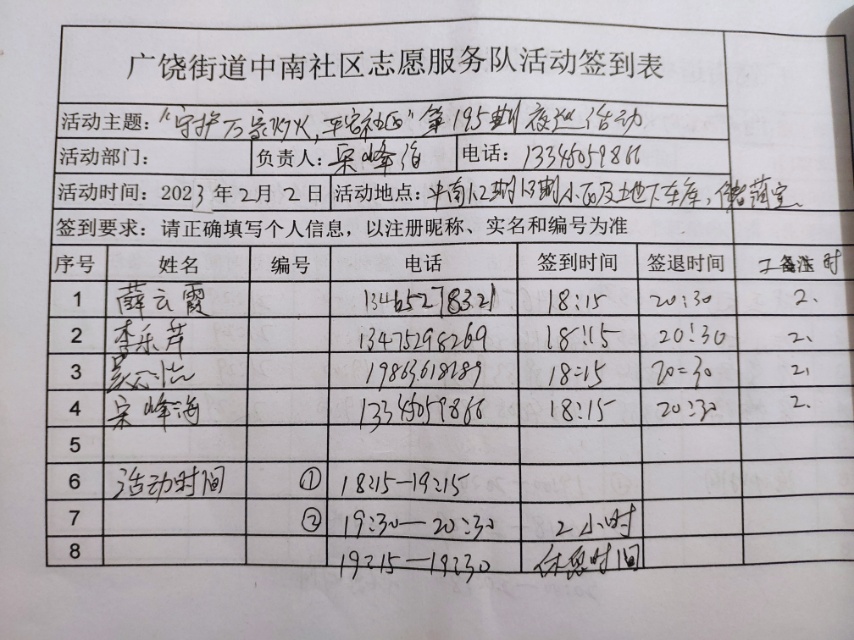 广饶街道中南社区志愿服务队活动签到表
活动主题："守护万家灯火,平安社区"第195期夜巡活动
活动部门： 负责人：宋峰海 电话：13345059866
活动时间：2023年2月2日 活动地点：中南1.2期1.3期小区及地下车库,储藏室、
签到要求：请正确填写个人信息，以注册昵称、实名和编号为准
序号 姓名 编号 电话 签到时间 签退时间 工备注时
1 薛云霞 13465278321 18:15 20:30 2.
2 李乐芹 13475298269 18:15 20:30 2、
3 19863618189 18:15 20:30 2,
4 宋峰海 13345059866 18:15 20:30 2.
5
6 活动时间 ① 18:15—19:15
7 ② 19:30—20:30 2小时
8 19:15—19:30 休息时间